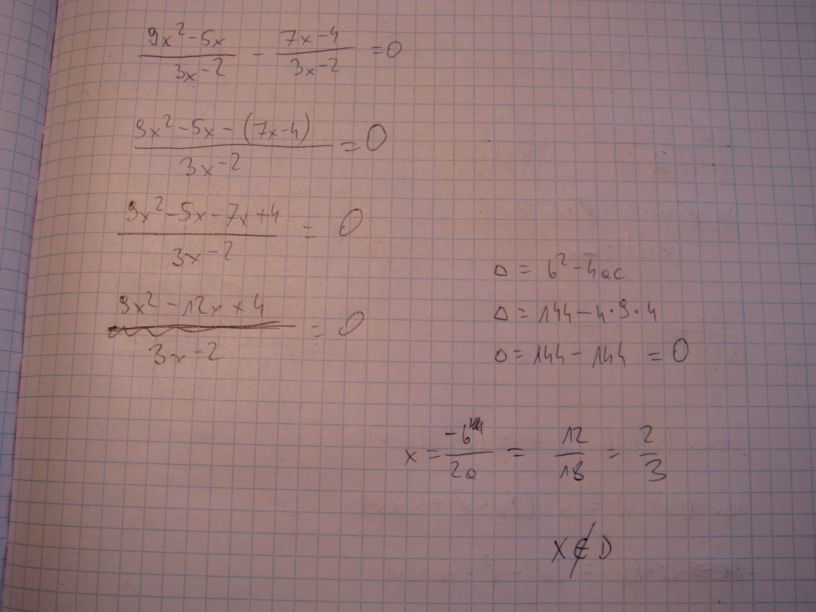 (9x²-5x)/(3x-2) - (7x-4)/(3x-2) = 0
(9x²-5x-(7x-4))/(3x-2) = 0
(9x²-5x-7x+4)/(3x-2) = 0
(9x²-12x+4)/(3x-2) = 0
Δ = b²-4ac
Δ = 144-4·9·4
Δ = 144-144 = 0
x = -b/2a = 12/18 = 2/3
x∉D